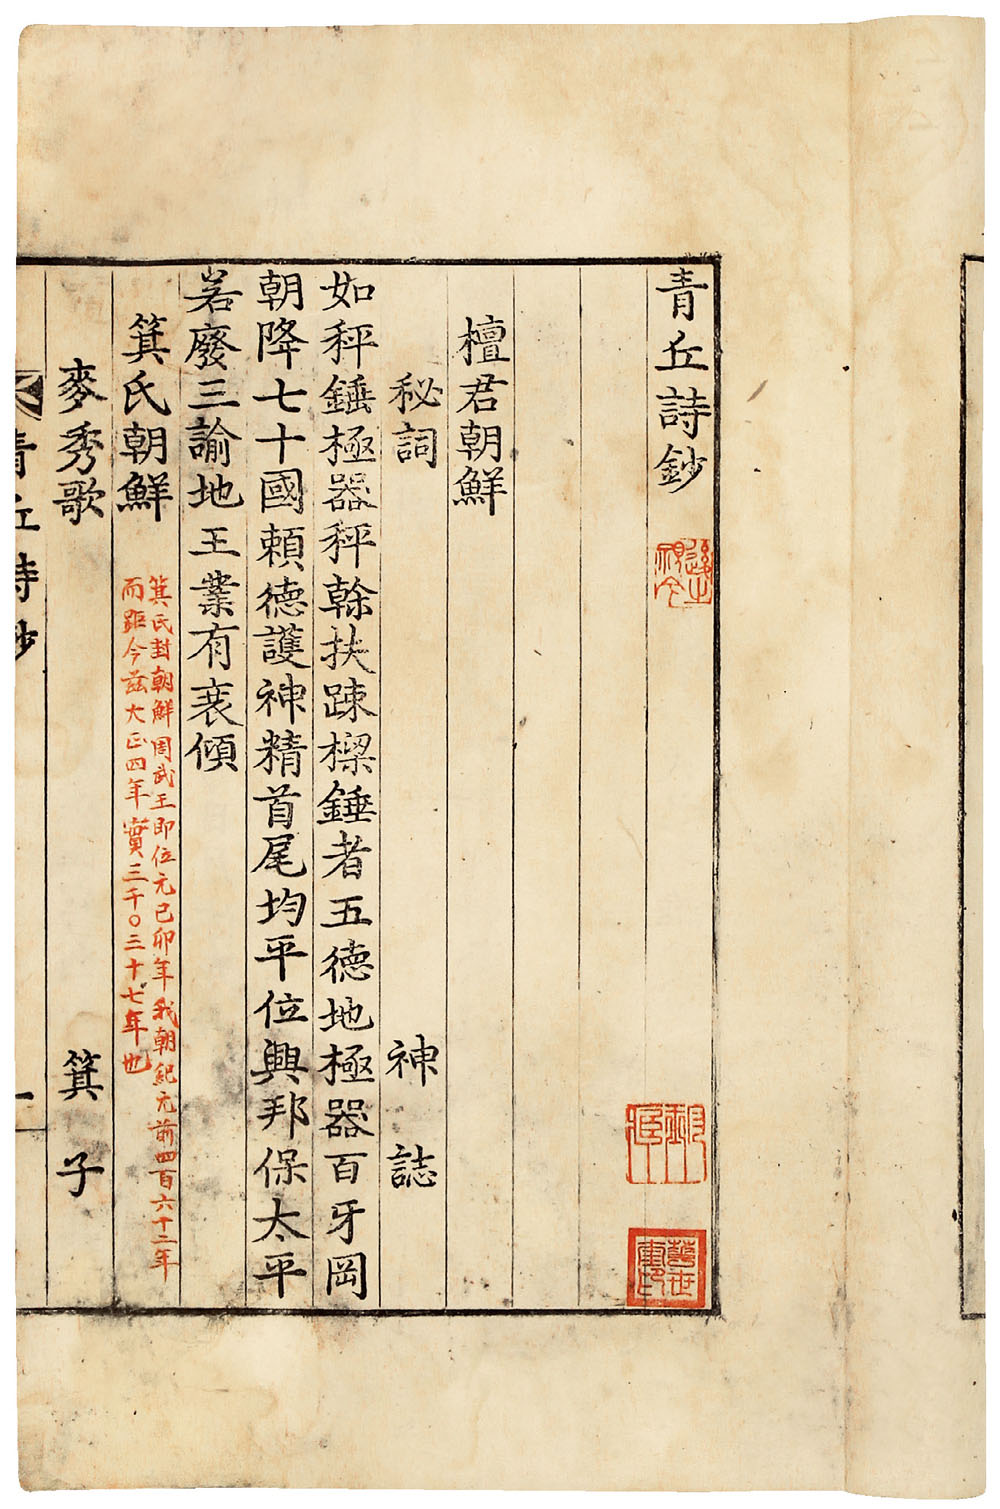 青丘詩鈔
檀君朝鮮
秘詞 神誌
如秤錘極器秤榦扶踈樑錘者五德地極器百牙岡
朝降七十國賴德護神精首尾均平位興邦保太平
若廢三諭地王業有衰傾
箕氏朝鮮
箕氏封朝鮮周武王即位元己卯年我朝紀元前四百六十二年
而距今茲大正四年實三千〇三十七年也
麥秀歌 箕子
青丘詩鈔 一